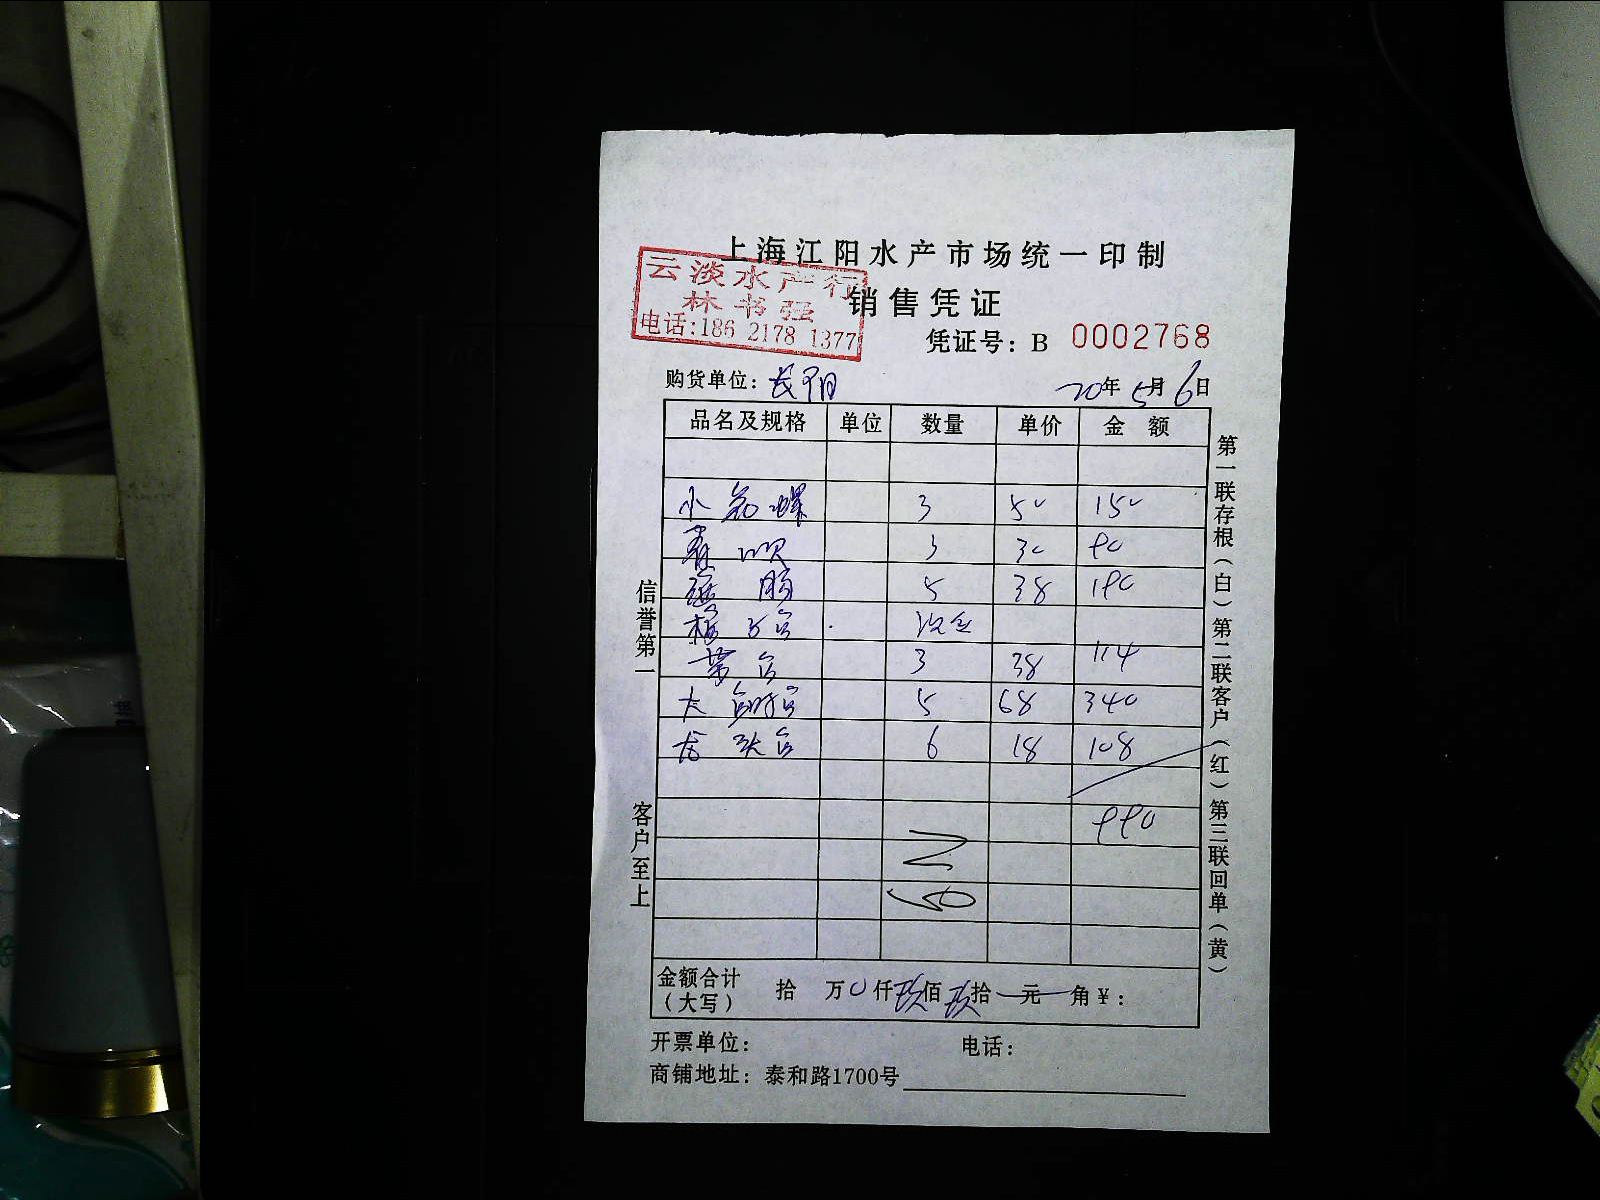 上海江阳水产市场统一印制
云淡水产行
林书强
电话:186 2178 1377
销售凭证
凭证号: B 0002768
购货单位: 长阳
20年 5月 6日
品名及规格 单位 数量 单价 金额
小 螺 3 50 150
3 30 90
5 38 190
3 38 114
大 5 68 340
龙头 6 18 108
990
金额合计(大写) 拾 万 0 仟 玖 佰 玖 拾 元 角 ¥:
开票单位: 电话:
商铺地址: 泰和路1700号
信誉第一 客户至上
第一联存根(白)第二联客户(红)第三联回单(黄)